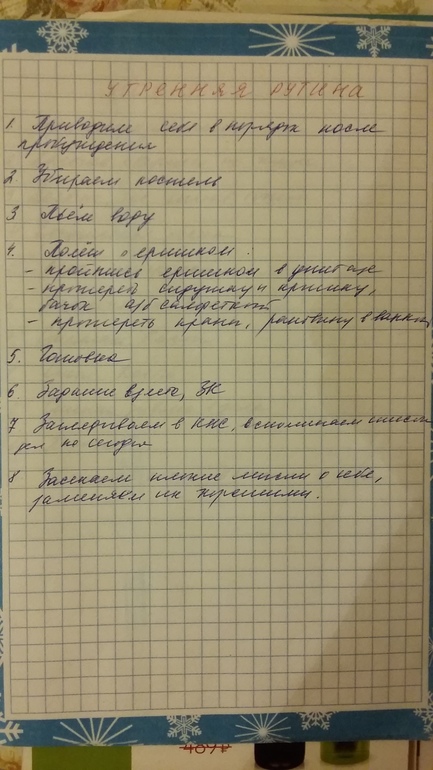 УТРЕННЯЯ РУТИНА
1. Приводим себя в порядок после
пробуждения
2. Убираем постель
3 Пьём воду
4. Полёт с ёршиком:
- пройтись ёршиком в унитазе
- протереть сидушку и крышку,
бачок а/б салфеткой
- протереть краны, раковину в ванной
5. Готовка
6. Задание ЗК
7 Заглядываем в КНС, вспоминаем список
дел на сегодня
8 Засекаем плохие мысли о себе,
заменяем их хорошими.
469₽